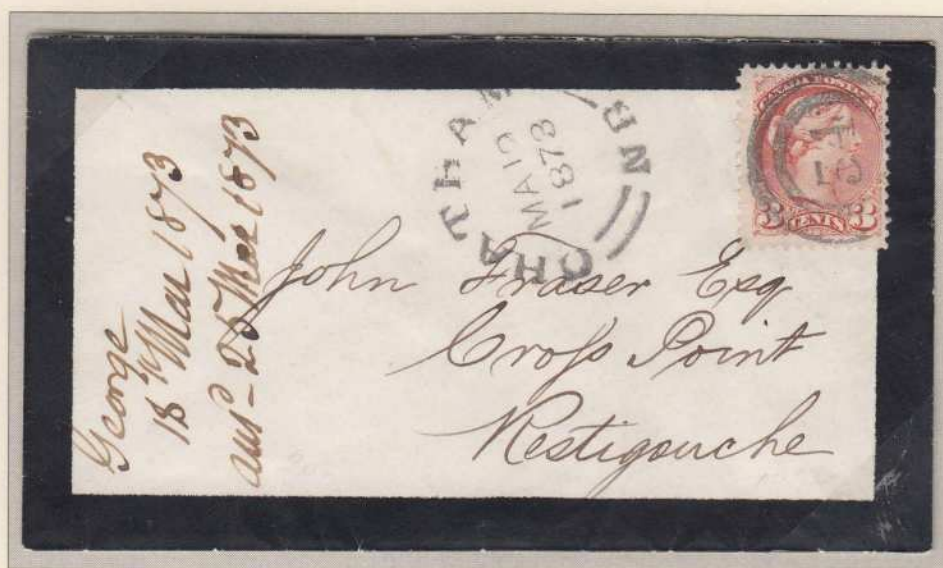 George
18th Mar 1873
ansd 25 Mar 1873
CHATHAM N B
MA 19
1873
CANADA POSTAGE
15
3 CENTS 3
John Fraser Esq
Cross Point
Restigouche